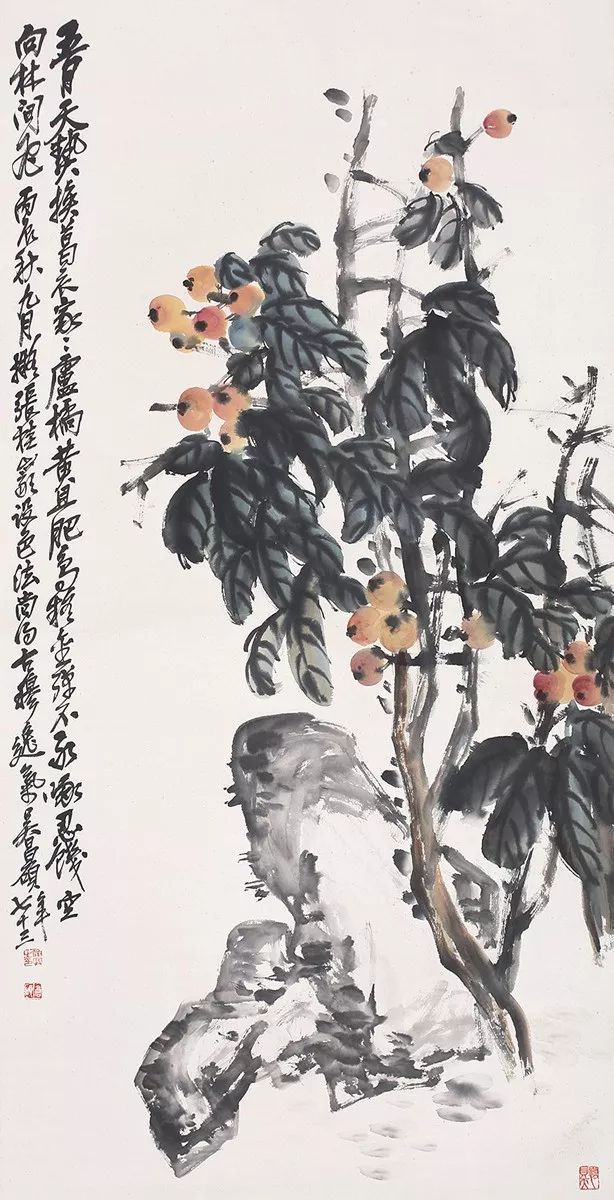 五月天熱換葛衣家〻盧橘黃且肥鳥疑金彈不敢啄忍饑空
向林間飛丙辰秋九月擬張桂巖設色法尚得古穆逸氣吳昌碩年七十三